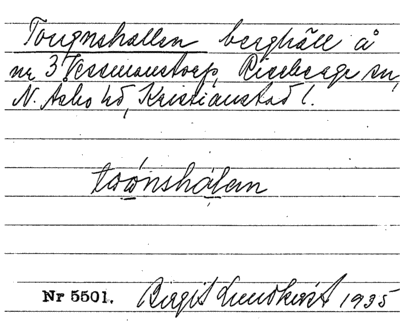 Tougnshallen berghäll å
nr 3 Vessmanstorp, Riseberga sn,
N. Asbo hd, Kristianstad l.
toónshálan
Nr 5501. Birgit Lundkvist 1935